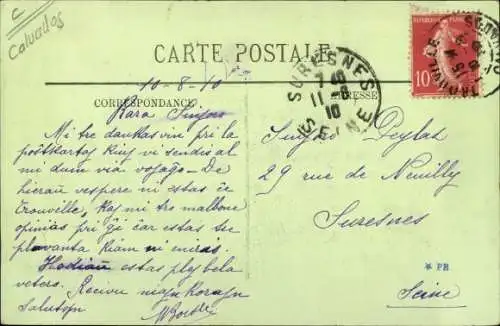 C
Calvados
CARTE POSTALE
REPUBLIQUE FRANÇAISE
10
SURESNES
7 40
11 -8
10
SEINE
10-8-10
CORRESPONDANCE
ADRESSE
Kara Sinjoro
Mi tre dankas vin pri la
poŝtkartoj kiuj vi sendis al
mi dum via vojaĝo – De
hieraŭ vespere ni estas ĉe
Trouville, kaj mi tre malbone
opinias pri ĝi ĉar estas tre
pluvanta kiam ni miris.
Hodiaŭ estas plej bela
vetero. Ricevu niajn korajn
Salutojn
Sinjoro Deplat
29 rue de Neuilly
Suresnes
* PH
Seine